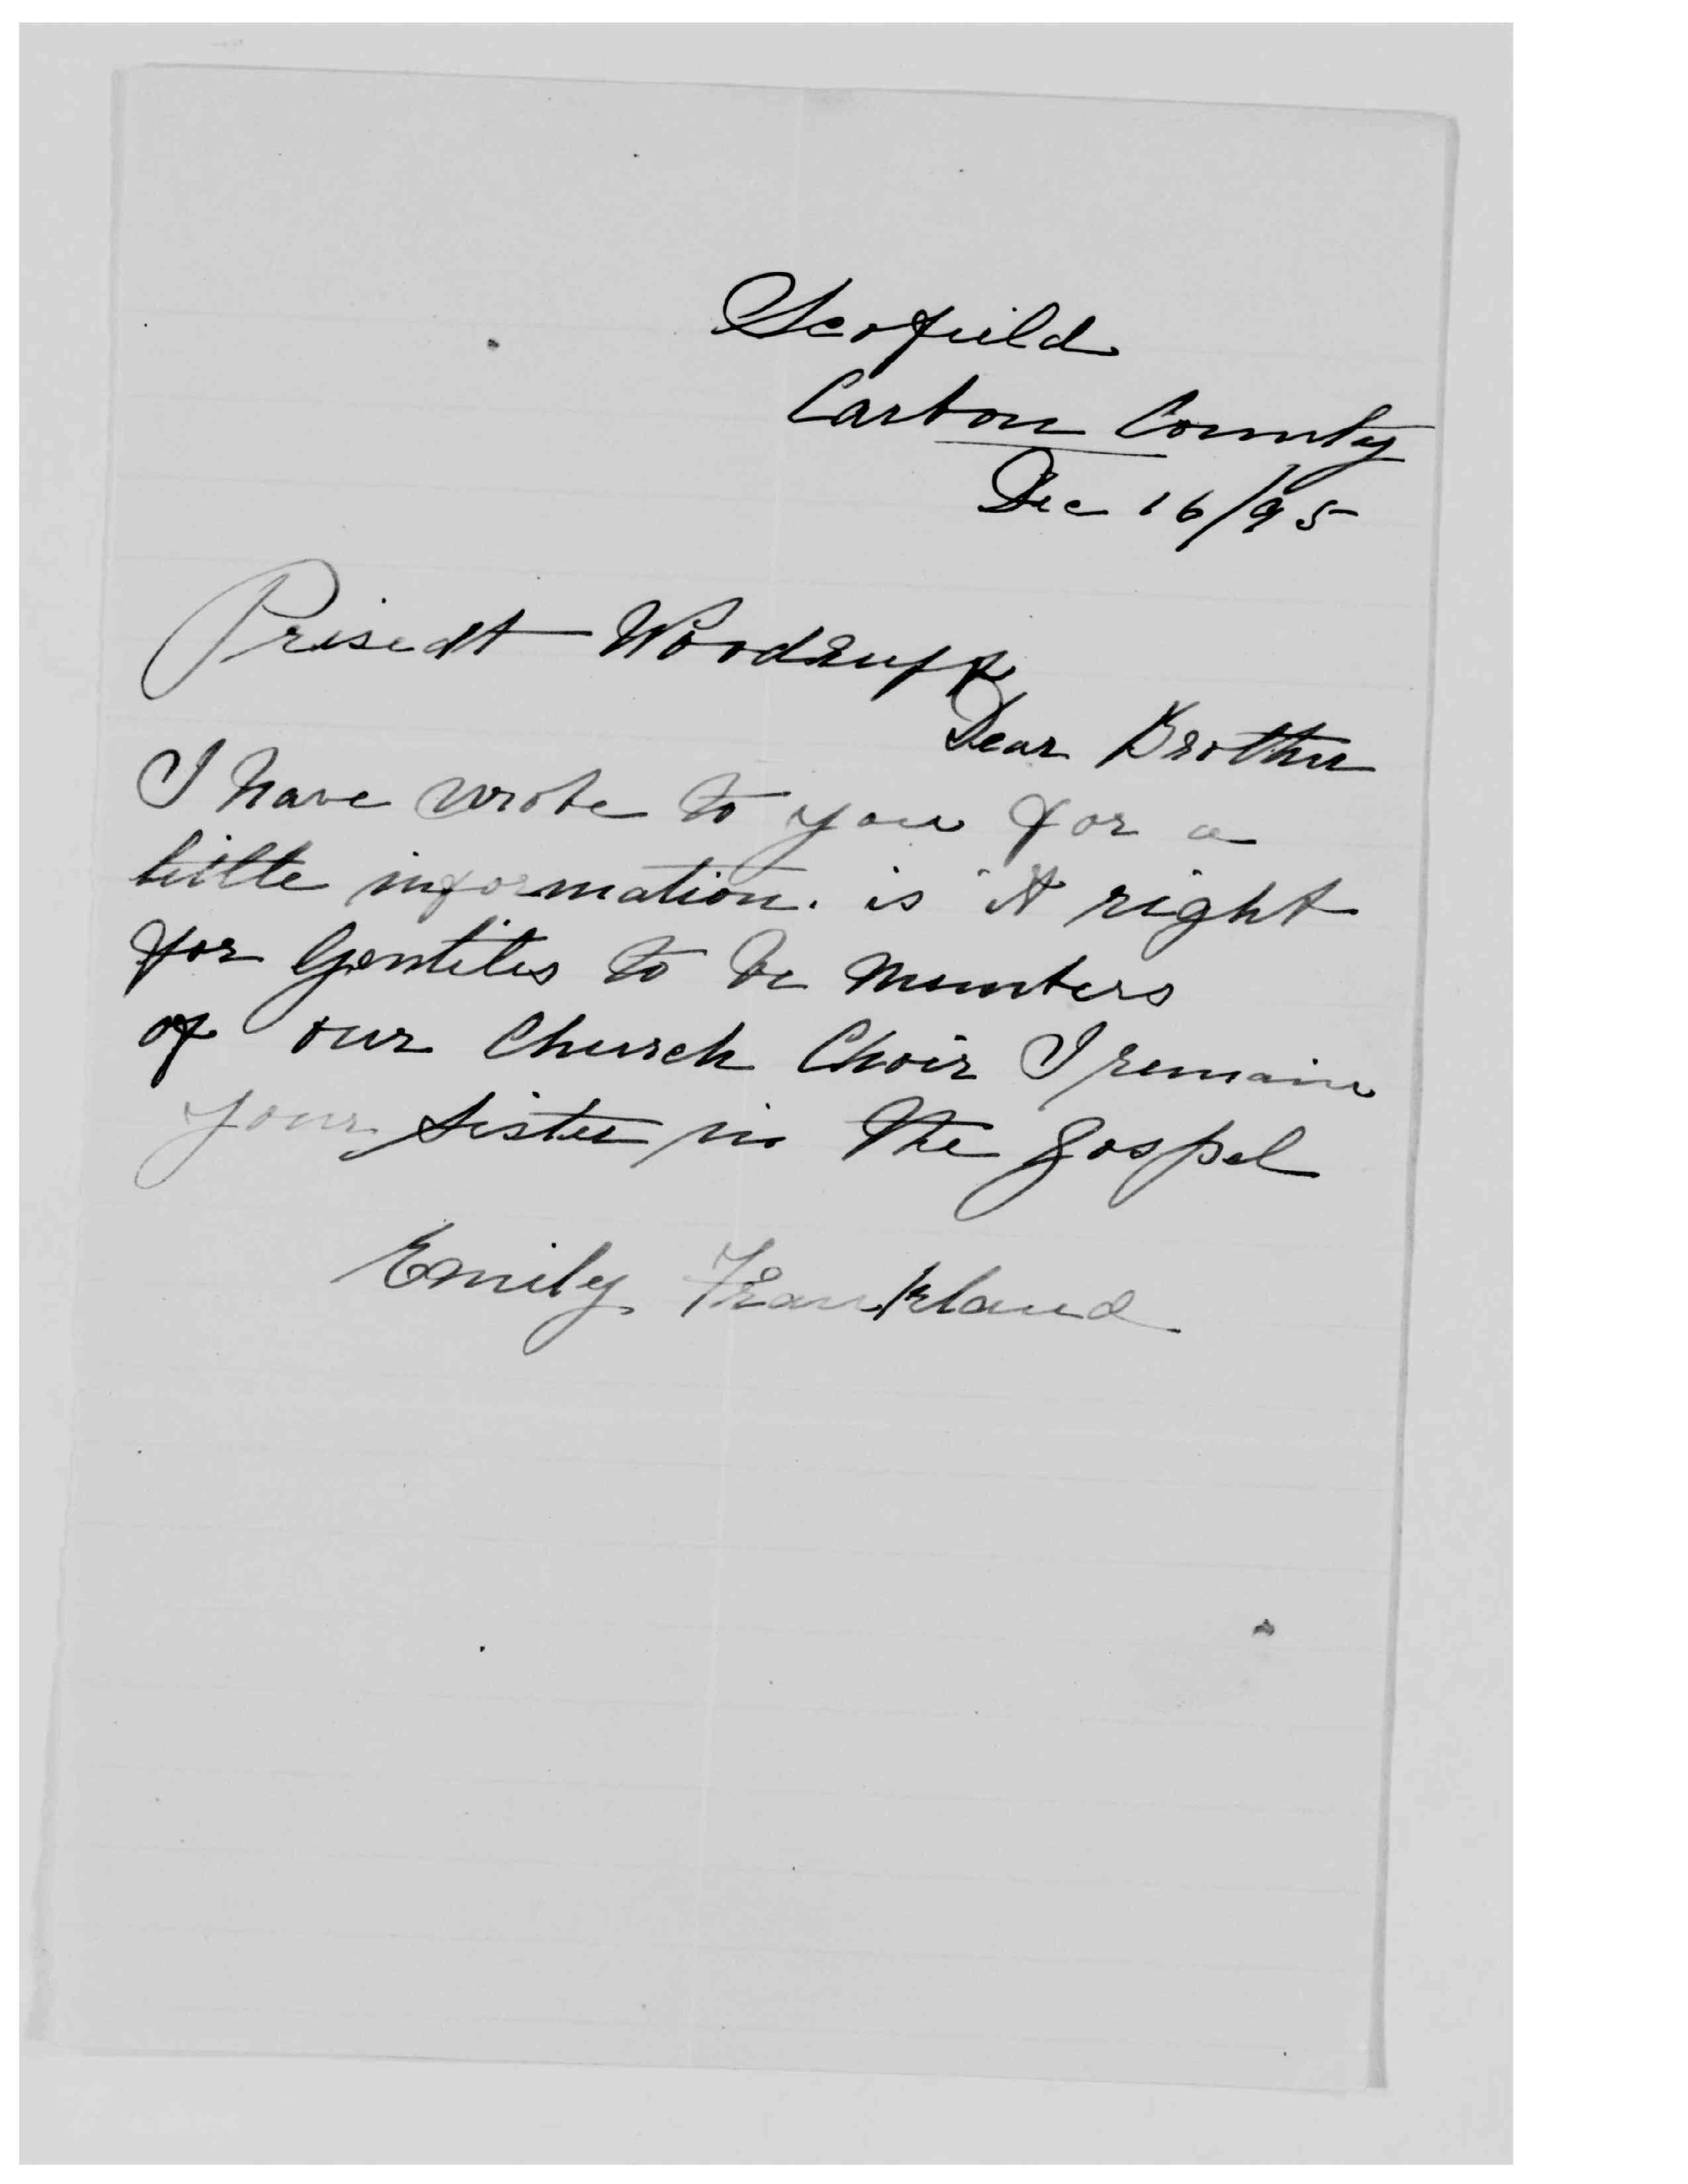 Scofield
Carbon County
Dec 16/95
Prisedt Woodruff
Dear Brother
I have wrote to you for a
little information. is it right
for Gentiles to be members
of our Church Choir I remain
your sister in the gospel
Emily Frankland